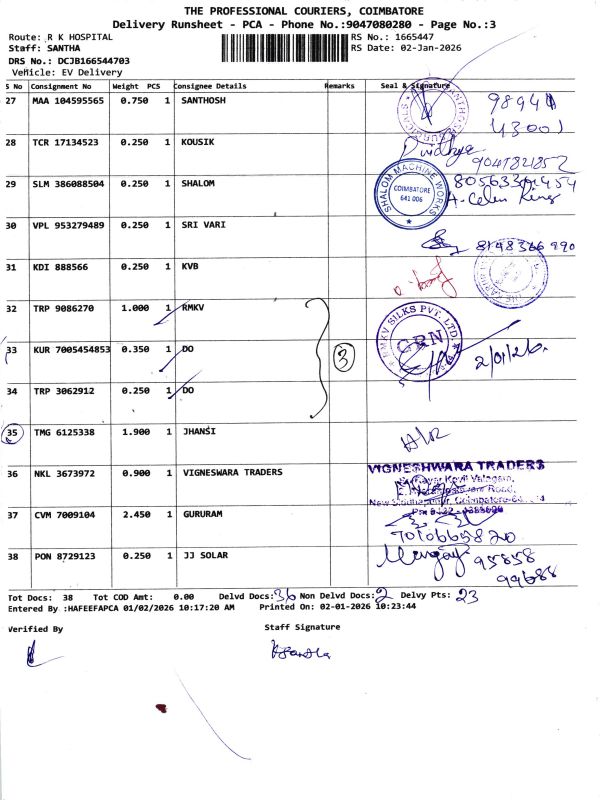 THE PROFESSIONAL COURIERS, COIMBATORE
Delivery Runsheet - PCA - Phone No.:9047080280 - Page No.:3
Route: R K HOSPITAL RS No.: 1665447
Staff: SANTHA RS Date: 02-Jan-2026
DRS No.: DCJB166544703
Vehicle: EV Delivery
S No Consignment No Weight PCS Consignee Details Remarks Seal & Signature
27 MAA 104595565 0.750 1 SANTHOSH
28 TCR 17134523 0.250 1 KOUSIK
29 SLM 386088504 0.250 1 SHALOM SHALOM MACHINE WORKS COIMBATORE 641 006
30 VPL 953279489 0.250 1 SRI VARI
31 KDI 888566 0.250 1 KVB
32 TRP 9086270 1.000 1 RMKV RMKV SILKS PVT. LTD GRN
33 KUR 7005454853 0.350 1 DO 3 2/01/26.
34 TRP 3062912 0.250 1 DO
35 TMG 6125338 1.900 1 JHANSI
36 NKL 3673972 0.900 1 VIGNESWARA TRADERS VIGNESHWARA TRADERS
37 CVM 7009104 2.450 1 GURURAM
7010665820
38 PON 8729123 0.250 1 JJ SOLAR
95858
99688
Tot Docs: 38 Tot COD Amt: 0.00 Delvd Docs: 36 Non Delvd Docs: 2 Delvy Pts: 23
Entered By :HAFEEFAPCA 01/02/2026 10:17:20 AM Printed On: 02-01-2026 10:23:44
Verified By Staff Signature